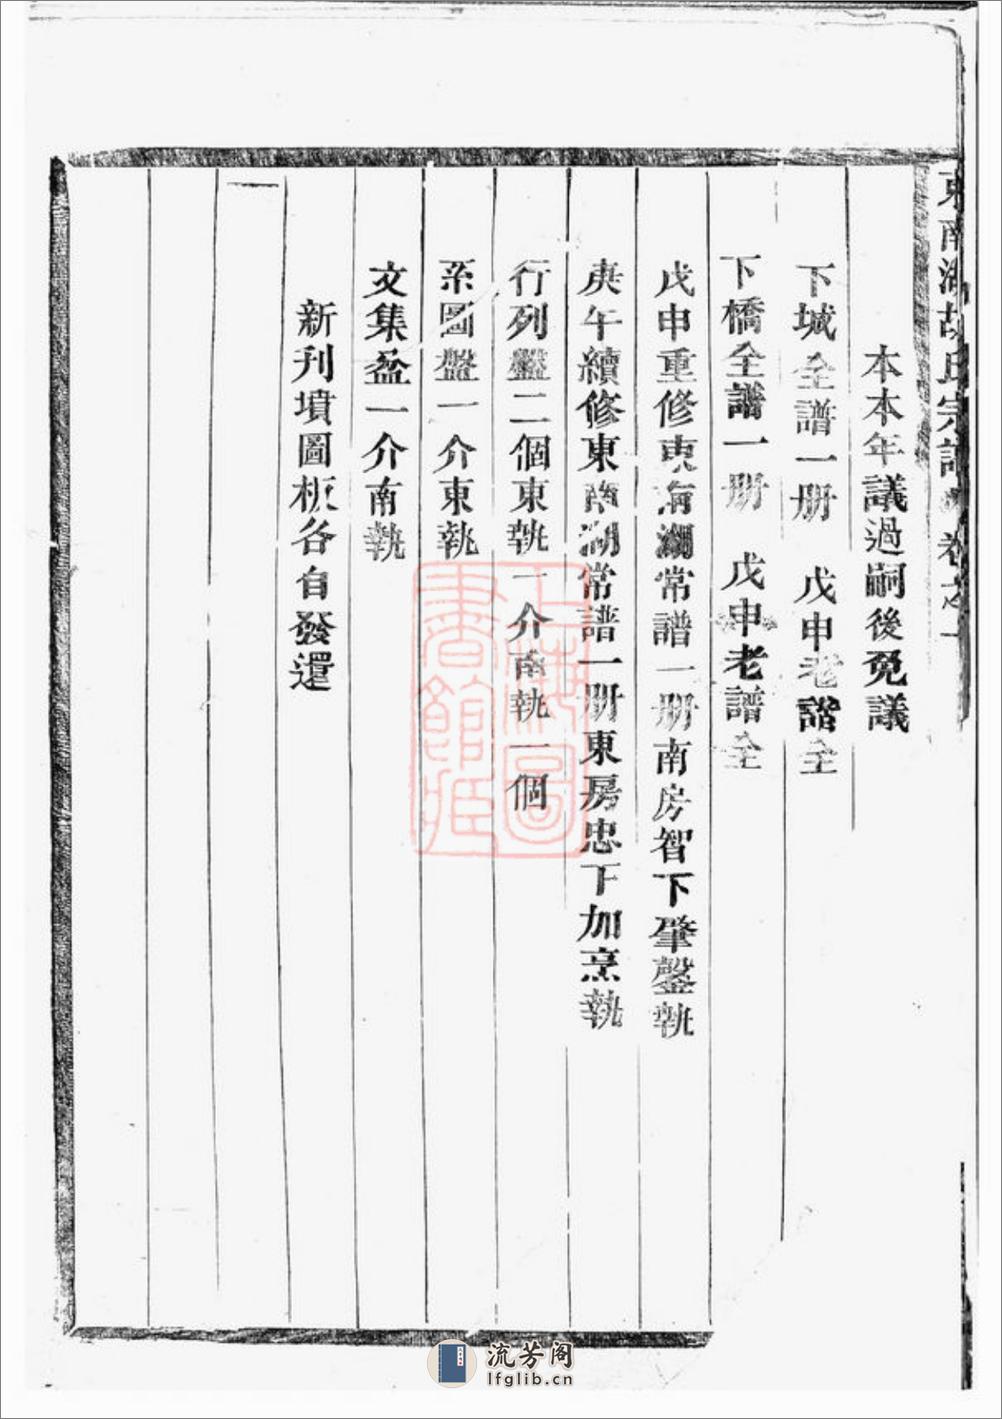 東南湖胡氏宗譜 卷之一
本本年議過嗣後免議
下城全譜一册 戊申老譜全
下橋全譜一册 戊申老譜全
戊申重修東南湖常譜一册南房智下肇罄執
庚午續修東南湖常譜一册東房忠下加烹執
行列盤二個東執一介南執一個
系圖盤一介東執
文集盈一介南執
新刊墳圖板各自發還
上海圖書館藏
流芳阁
lfglib.cn